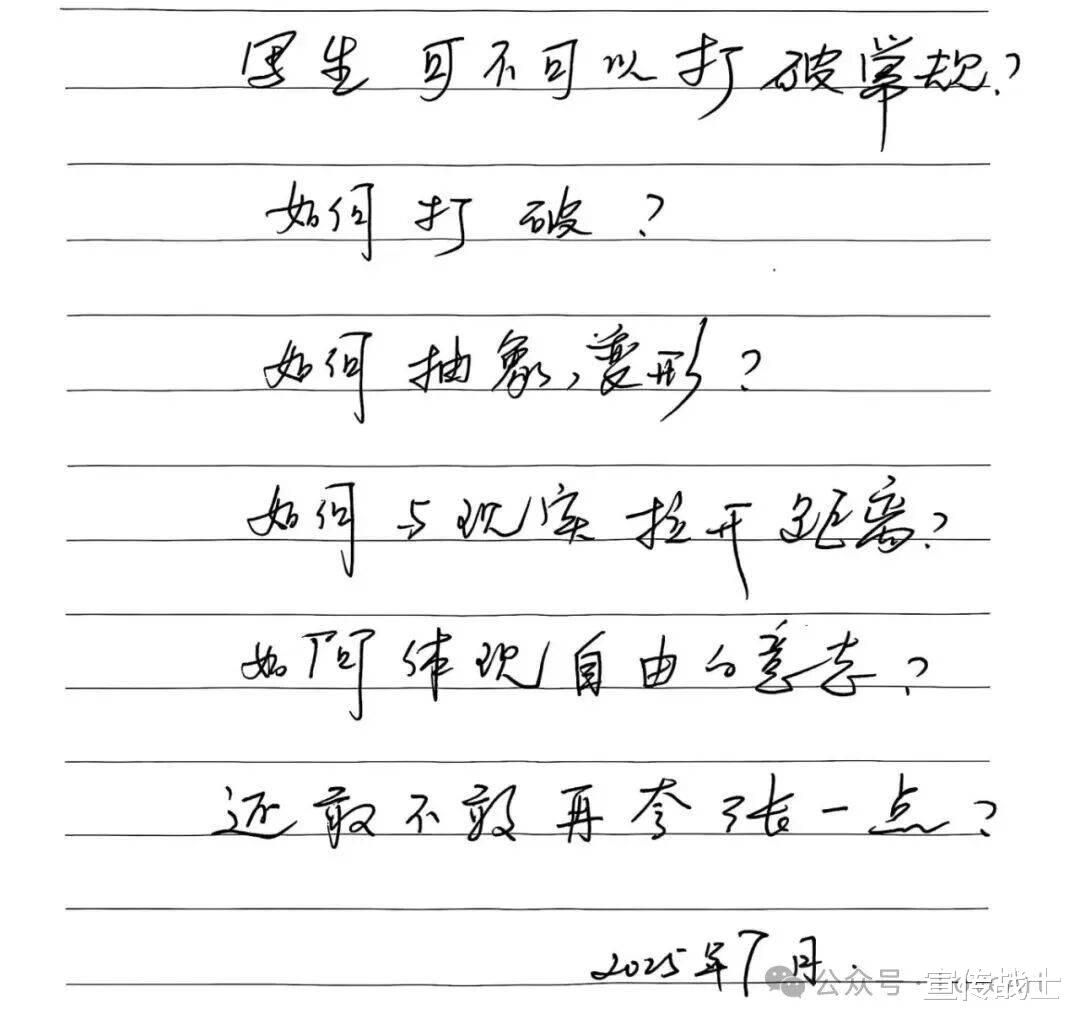 写生可不可以打破常规?
如何打破?
如何抽象,变形?
如何与现实拉开距离?
如何体现自由的意志?
还敢不敢再夸张一点?
2025年7月.
公众号·宣传战士